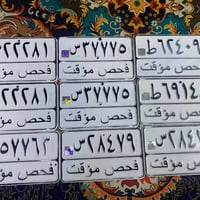 ٢٢٢٨١
فحص مؤقت
٣٧٧٧٥ س
فحص مؤقت
٦٢٤٠٩ ط
فحص مؤقت
٢٢٢٨١
فحص مؤقت
٣٧٧٧٥ س
فحص مؤقت
فحص مؤقت
فحص مؤقت
٢٨٤٧٩ س
فحص مؤقت
فحص مؤقت